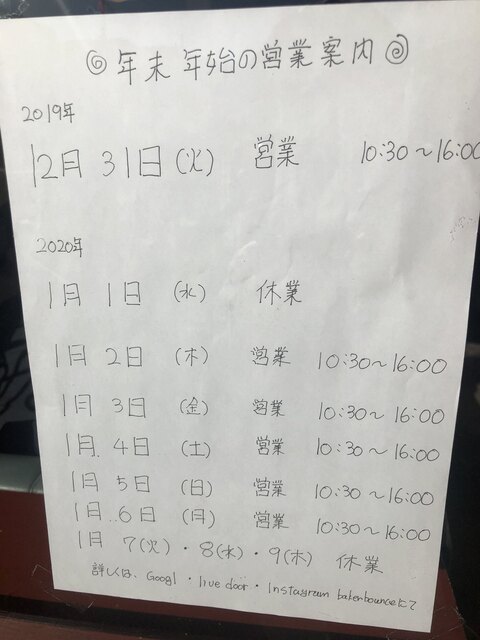 年末年始の営業案内
2019年
12月 31日 (火) 営業 10:30〜16:00
2020年
1月 1日 (水) 休業
1月 2日 (木) 営業 10:30〜16:00
1月 3日 (金) 営業 10:30〜16:00
1月 4日 (土) 営業 10:30〜16:00
1月 5日 (日) 営業 10:30〜16:00
1月 6日 (月) 営業 10:30〜16:00
1月 7(火)・8(水)・9(木) 休業
詳しくは、Googl・live door・Instagram bakenbounceにて